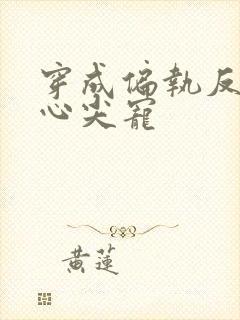 穿成偏執反
心尖寵
黃蓮